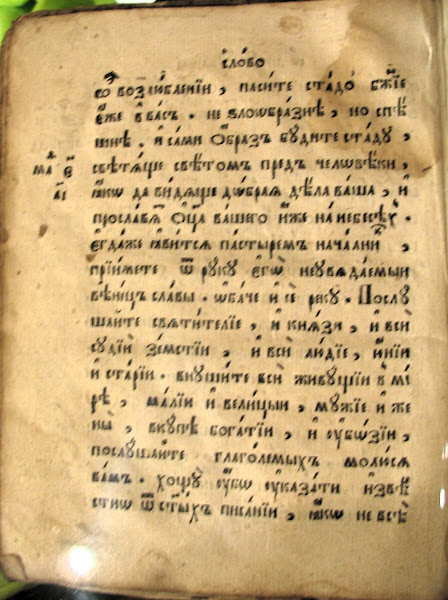 сло́во
ѽ возлюбленїи , пасите стадо бж҃їе
є́же в васъ . не ѕлоѡбразнѣ , но спѣ
шнѣ . и́ сами о́бразъ будите стаду ,
свѣтѧще свѣтомъ предъ человѣки ,
ꙗ́кѡ да видѧще дѡбраѧ дѣла ваша , и́
прославѧт ѻ҆ц҃а вашего и́же на небесѣхъ .
є́гдаже ꙗ́витсѧ пастыремъ началник ,
прїимете ѿ руку є́гѡ неувѧдаемыи
вѣнецъ славы . ѡ́баче и́ се реку . Послу
шаите свѧтителїе , и́ кнѧзи , и́ вси
судїи земстїи , и́ вси людїе , ю́нїи
и́ старїи . внушите вси живущїи в мі
рѣ , малїи и́ велицыи , мужїе и́ же
ны , вкупѣ богатїи , и́ убѡзїи ,
послушаите глаголемыхъ молюсѧ
вамъ . хощу у́бѡ у́казати и́звѣ
стнѡ ѿ ст҃ыхъ писанїи , ꙗ́кѡ не всѣ